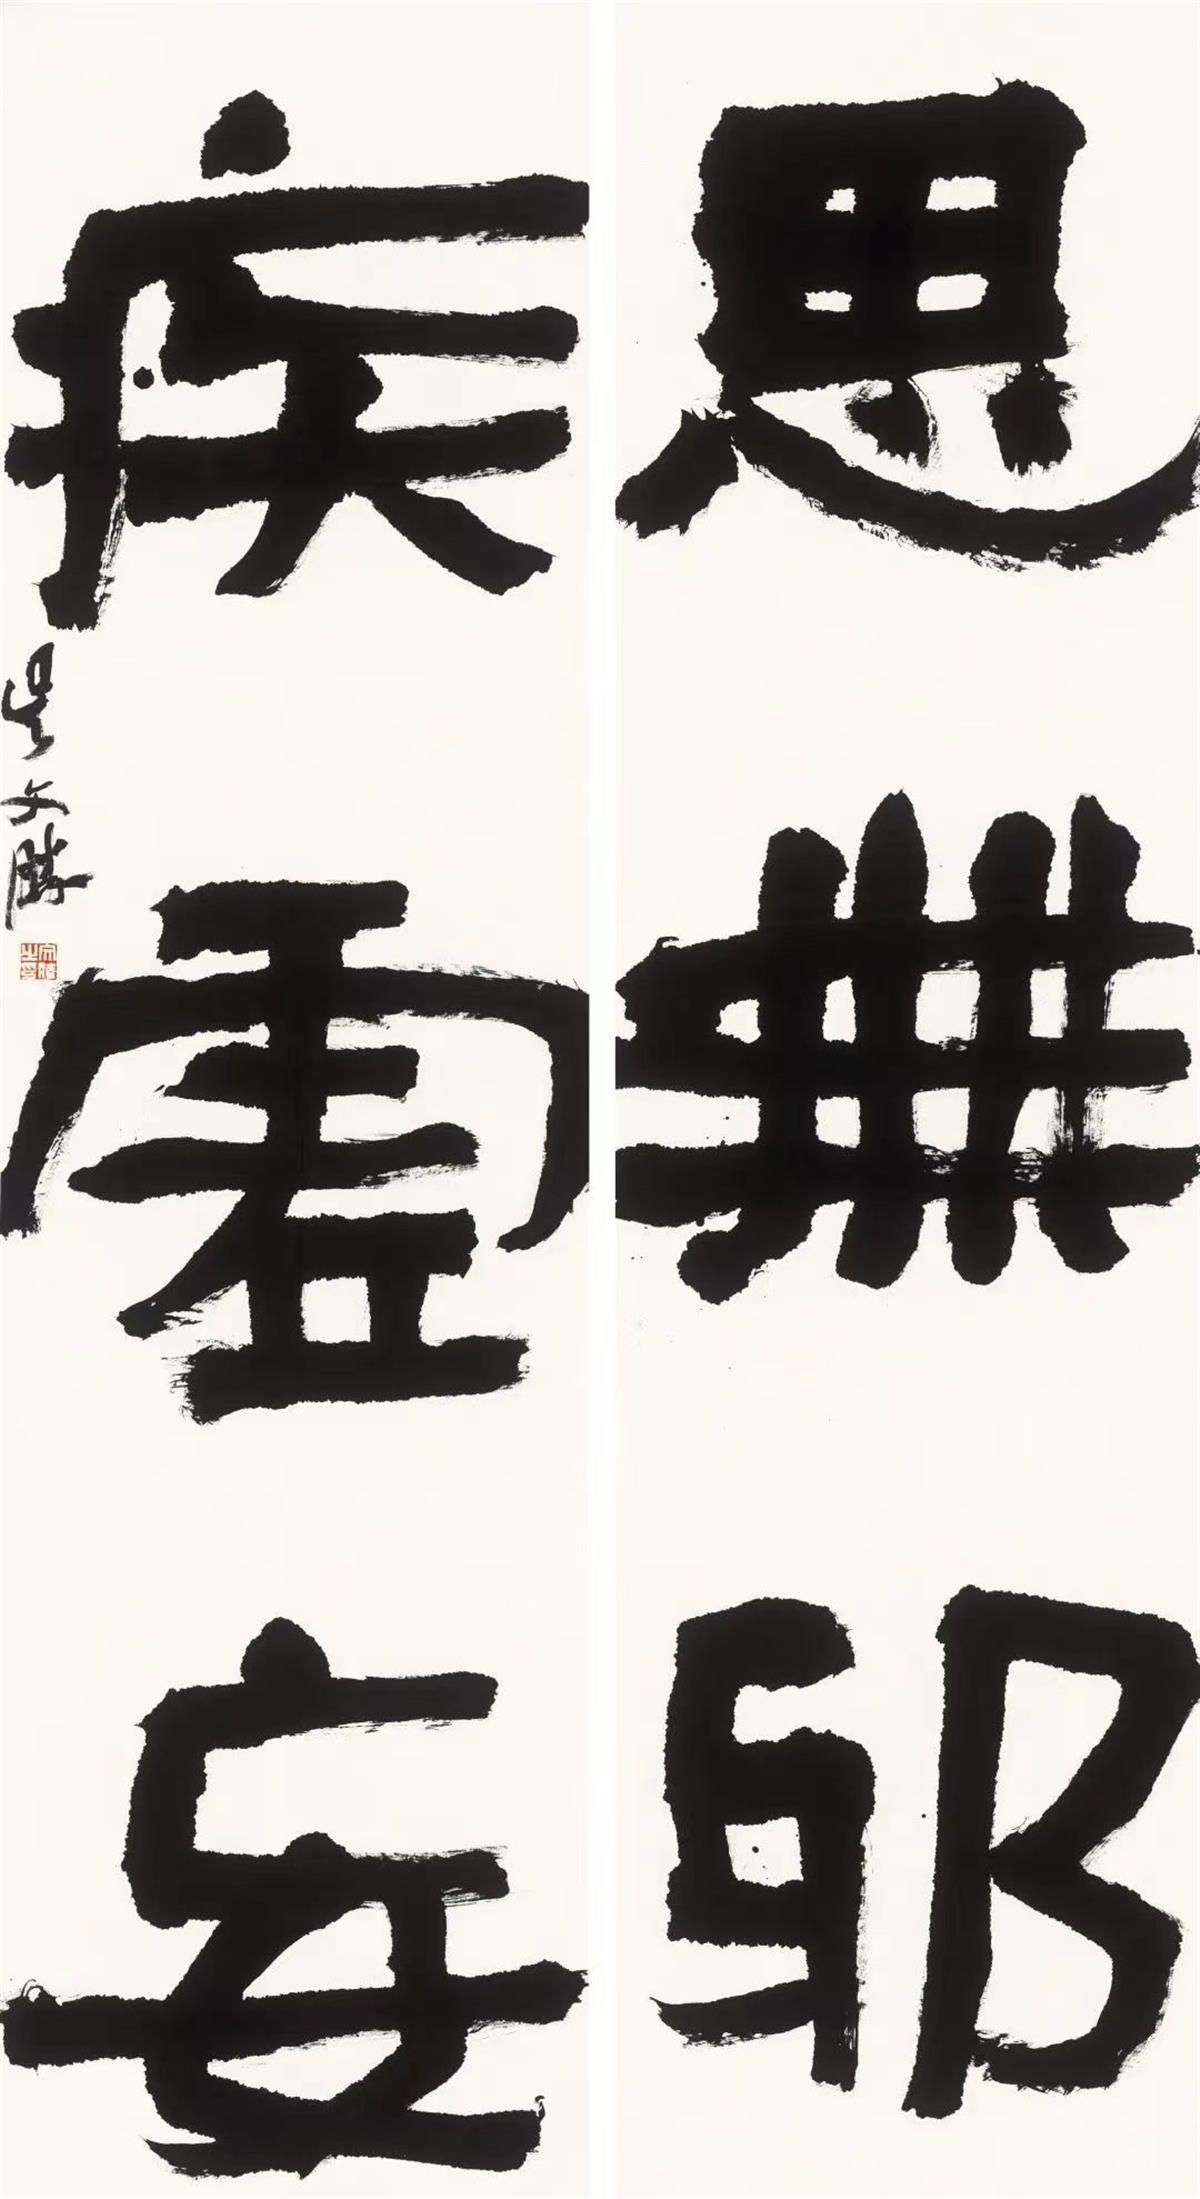 思無邪
疾虛妄
吴文勝